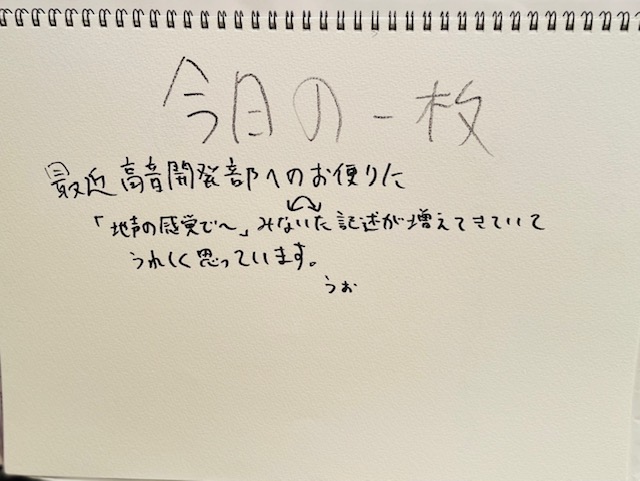 今日の一枚
最近高音開発部へのお便りに
「地声の感覚で〜」みないた記述が増えてきていて
うれしく思っています。
うぉ